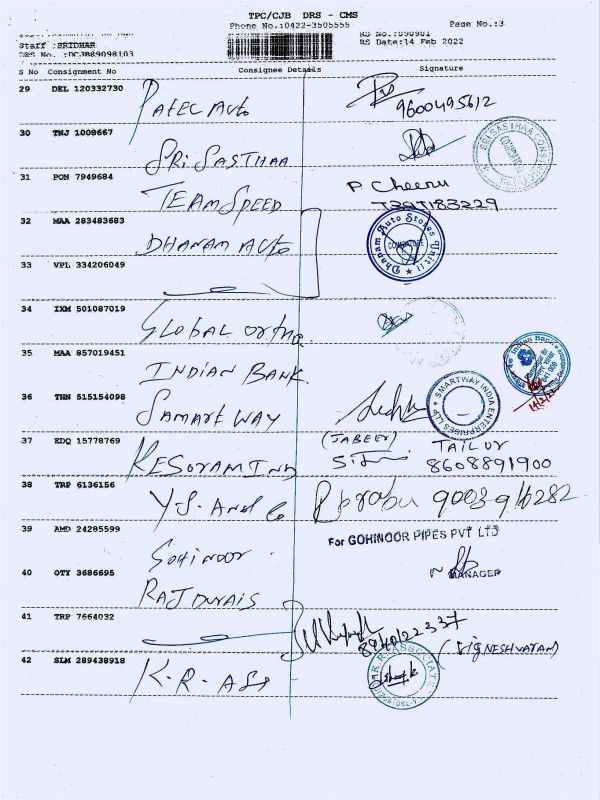 TPC/CJB DRS - CMS
Phone No.:0422-3505555 Page No.:3
RS No.:890981
Staff :SRIDHAR RS Date:14 Feb 2022
DRS No. :DCJB89098103
S No Consignment No Consignee Details Signature
29 DEL 120332730
PATEC AUTO 9600495612
30 TNJ 1008667
SRI SASTHAA
31 PON 7949684 P Cheenu
TEAM SPEED
32 MAA 283483683
DHANAM AUTO Dhanam Auto Stores Unit II COIMBATORE
33 VPL 334206049
34 IXM 501087019
GLOBAL ortho
35 MAA 857019451
INDIAN BANK Indian Bank
36 THN 515154098
SAMART WAY SMARTWAY INDIA ENTERPRISES LLP
37 EDQ 15778769 (JABEER) TAILUR
KESORAM IND 8608891900
38 TRP 6136156
Y.S. And Co P prabu
39 AMD 24285599 For GOHINOOR PIPES PVT LTD
GOHINOOR
40 OTY 3686695 MANAGER
RAJ DURAIS
41 TRP 7664032
(VIGNESHVARAN)
42 SLM 289438918 K R ASSOCIATES
K.R. ASS